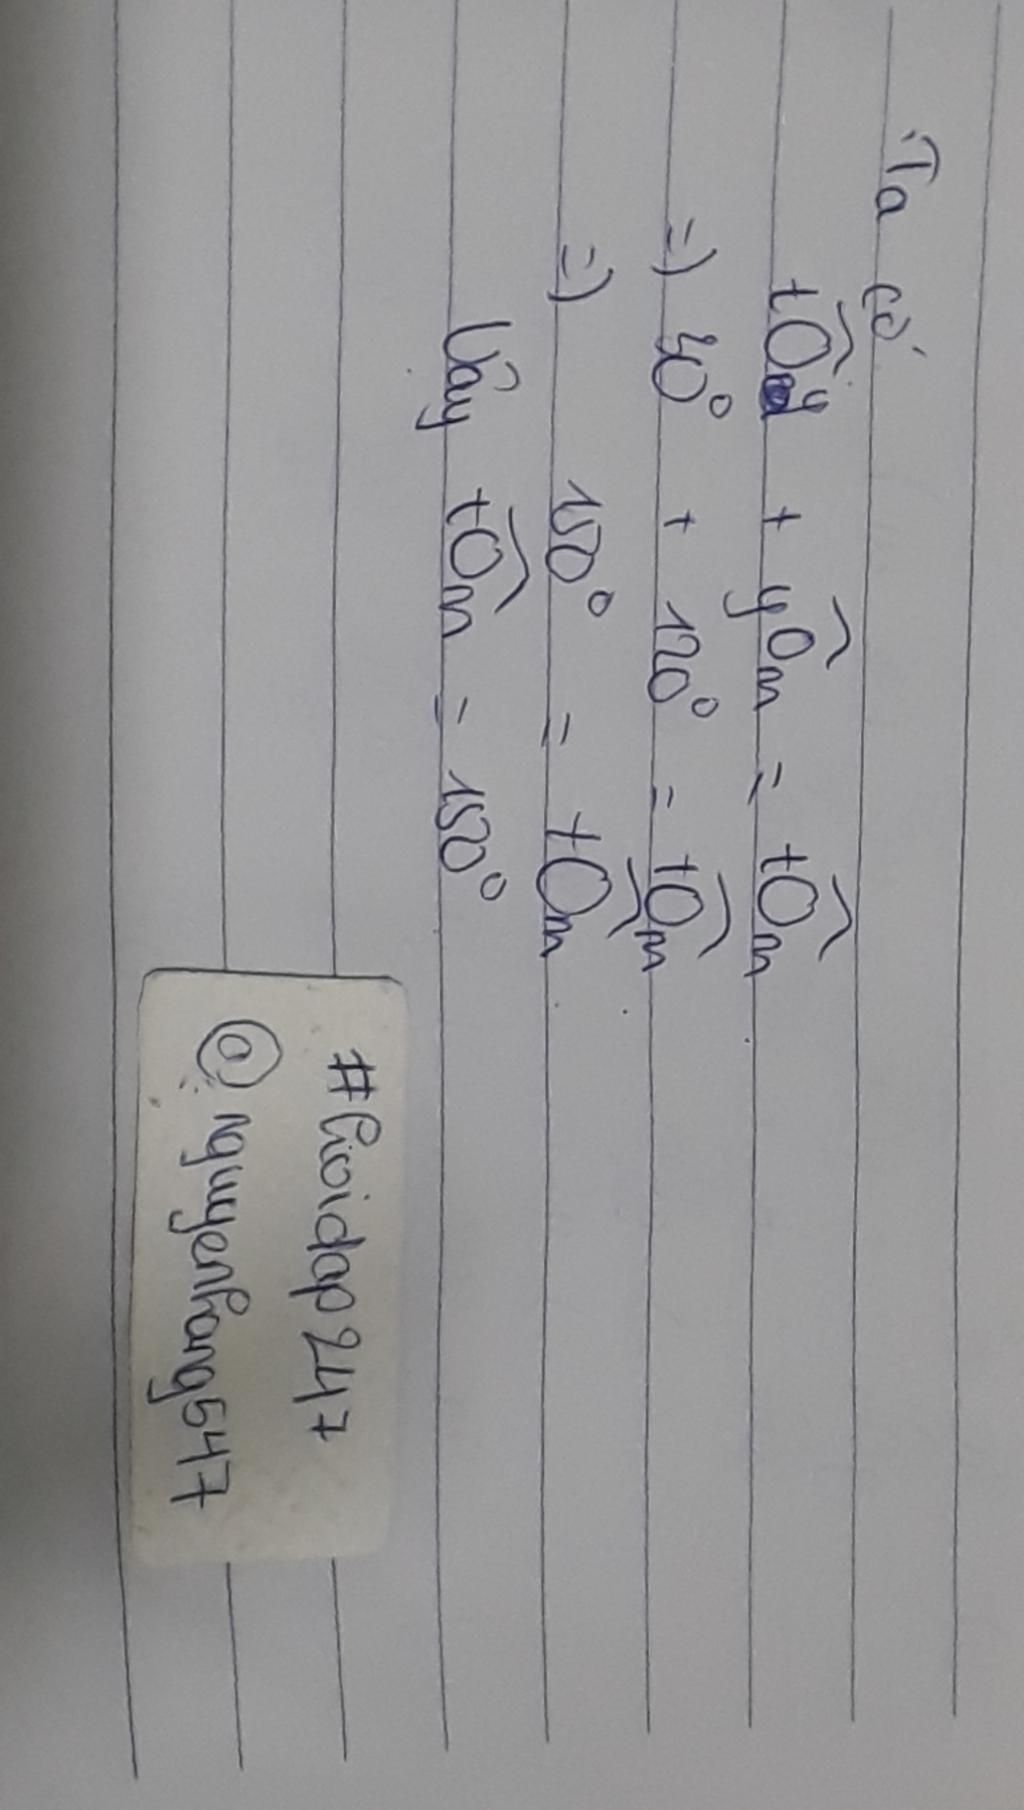 Ta có
tÔy + yÔm = tÔm
=) 30° + 120° = tÔm
=) 150° = tÔm
Vậy tÔm = 150°
#hoidap247
@ nguyenhang547